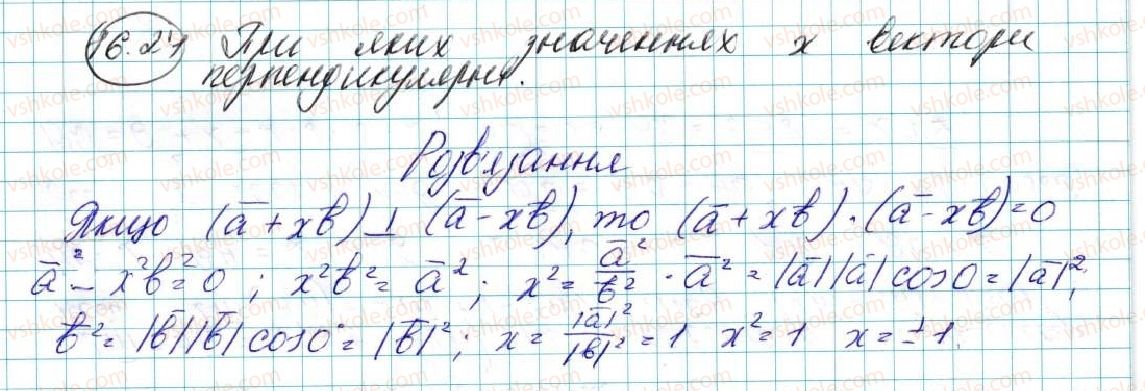 16.21 При яких значеннях x вектори
перпендикулярні.
Розв'язання
Якщо (a̅ + xb̅) ⊥ (a̅ - xb̅), то (a̅ + xb̅) · (a̅ - xb̅) = 0
a̅² - x²b̅² = 0 ; x²b̅² = a̅² ; x² = a̅²/b̅² · a̅² = |a̅||a̅| cos0 = |a̅|²;
b̅² = |b̅||b̅| cos0° = |b̅|² ; x = |a̅|²/|b̅|² = 1 x² = 1 x = ±1.